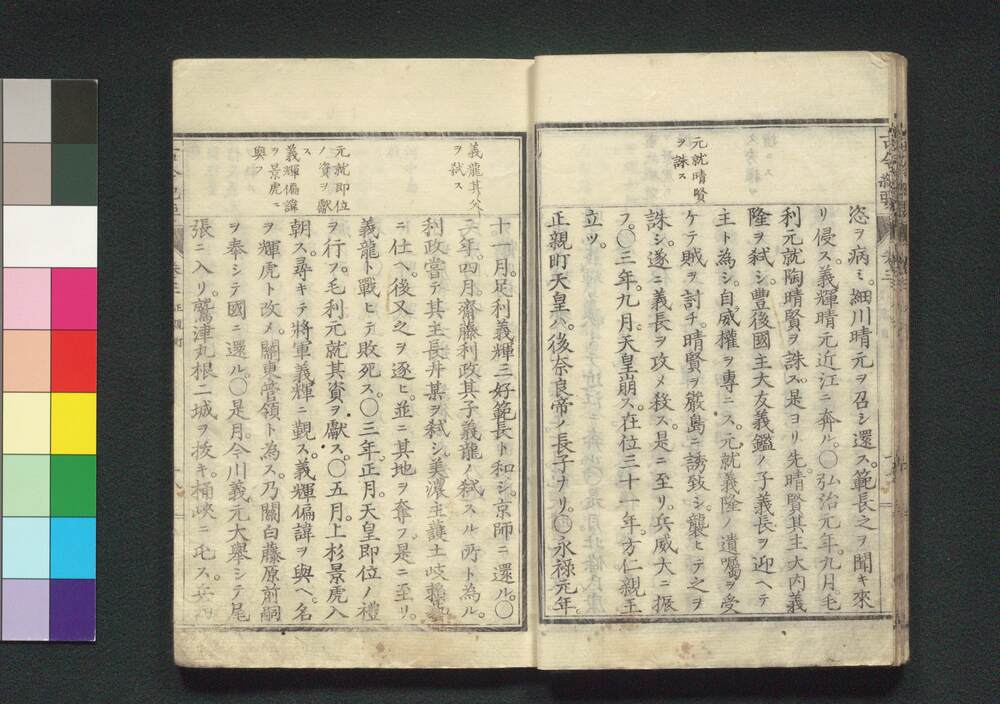 元就晴賢
ヲ誅ス
恣ヲ病ミ。細川晴元ヲ召シ還ス。範長之ヲ聞キ來
リ侵ス。義輝晴元近江ニ奔ル。〇弘治元年。九月。毛
利元就陶晴賢ヲ誅ス。是ヨリ先。晴賢其主大内義
隆ヲ弑シ。豊後國主大友義鑑ノ子義長ヲ迎ヘテ
主ト為シ。自威權ヲ專ニス。元就義隆ノ遺囑ヲ受
ケテ賊ヲ討チ。晴賢ヲ嚴島ニ誘致シ。襲ヒテ之ヲ
誅シ。遂ニ義長ヲ攻メ殺ス。是ニ至リ。兵威大ニ振
フ。〇三年。九月。天皇崩ス。在位三十一年。方仁親王
立ツ。
正親町天皇ハ。後奈良帝ノ長子ナリ。〇永禄元年。
義龍其父
ヲ弑ス
元就即位
ノ資ヲ獻
ス
義輝偏諱
ヲ景虎ニ
與フ
十一月。足利義輝三好範長ト和シ。京師ニ還ル。〇
二年。四月。齋藤利政其子義龍ノ弑スル所ト為ル。
利政嘗テ其主長井某ヲ弑シ。美濃主護土岐
ニ仕ヘ。後又之ヲ逐ヒ。並ニ其地ヲ奪フ。是ニ至リ。
義龍ト戰ヒテ敗死ス。〇三年。正月。天皇即位ノ禮
ヲ行フ。毛利元就其資ヲ獻ス。〇五月。上杉景虎入
朝ス。尋キテ將軍義輝ニ覲ス。義輝偏諱ヲ與ヘ。名
ヲ輝虎ト改メ。關東管領ト為ス。乃關白藤原前嗣
ヲ奉シテ國ニ還ル。〇是月。今川義元大舉シテ尾
張ニ入リ。鷲津丸根二城ヲ拔キ。桶峽ニ屯ス。兵